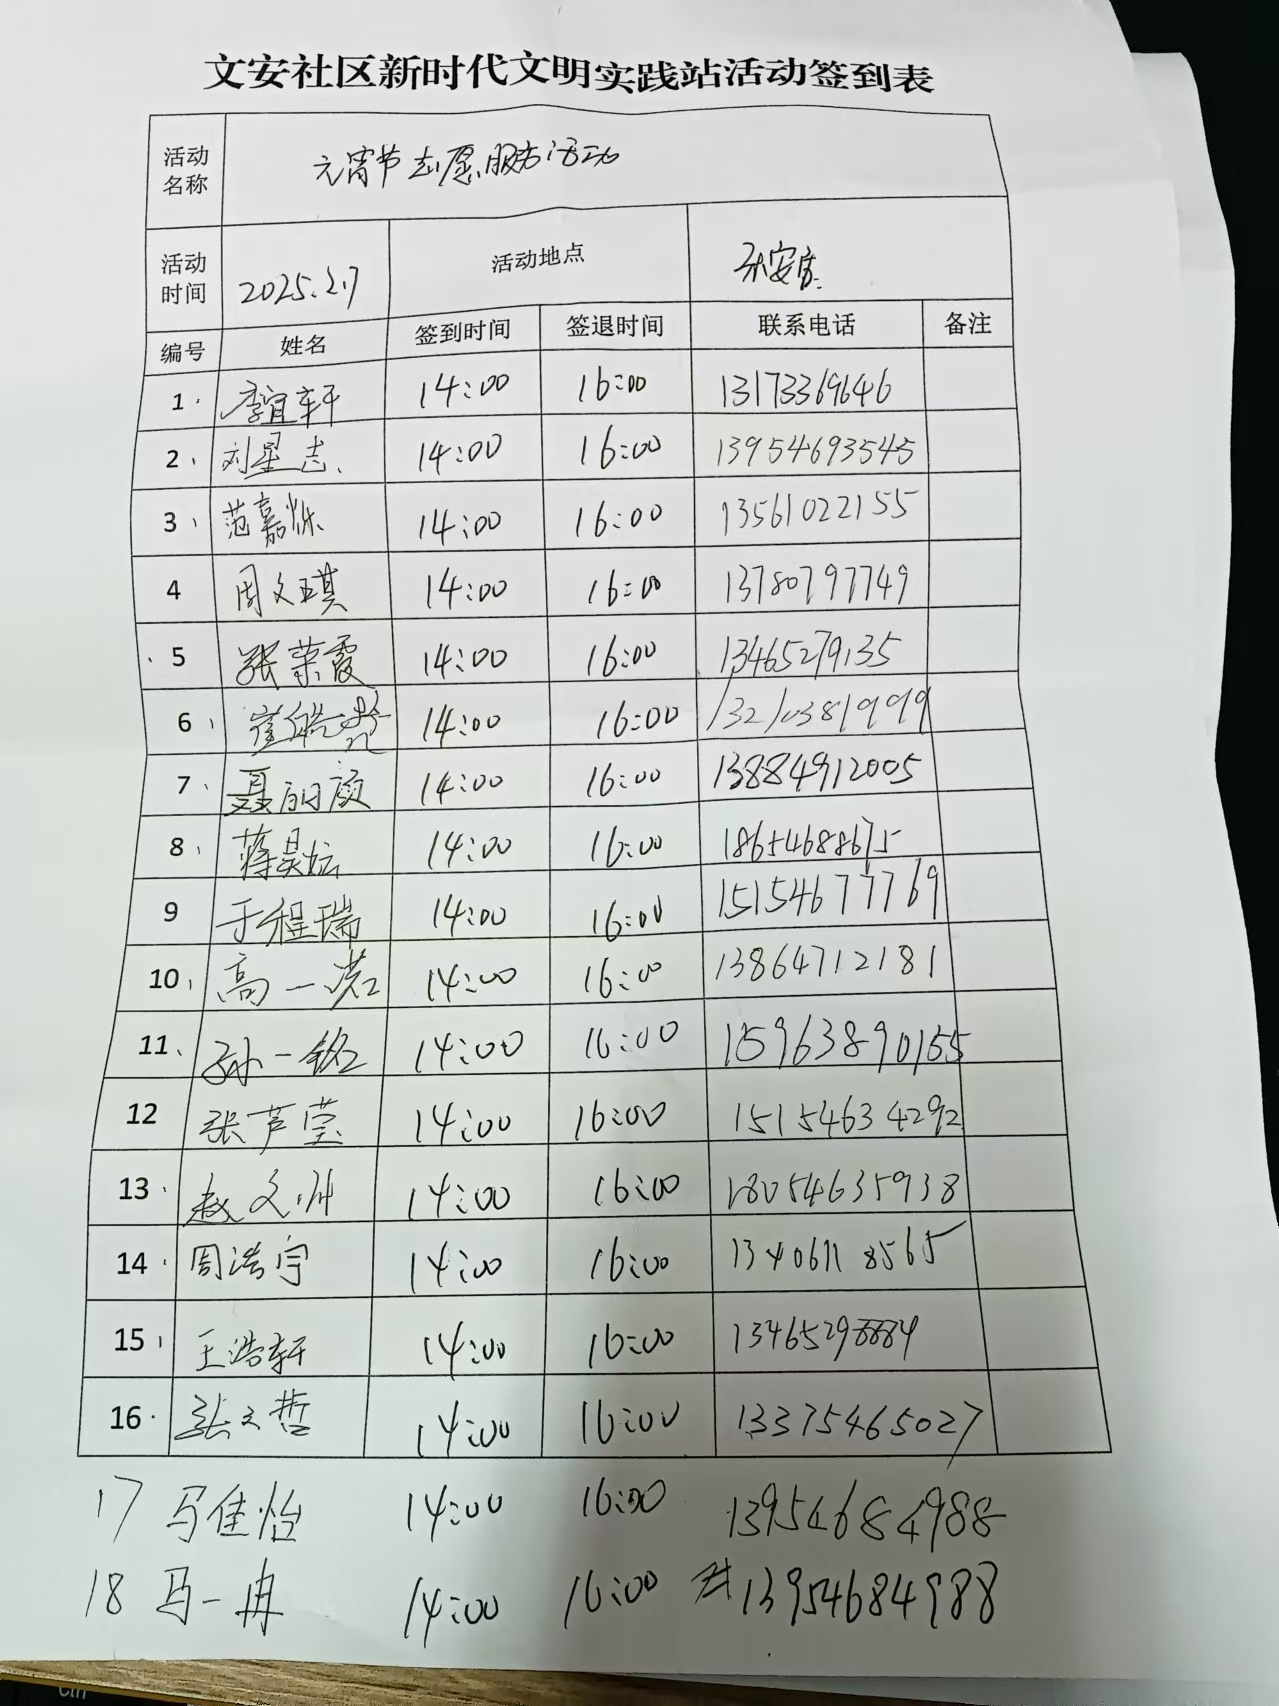 文安社区新时代文明实践站活动签到表
活动名称 元宵节志愿服务活动
活动时间 2025.2.7 活动地点
编号 姓名 签到时间 签退时间 联系电话 备注
1 李宜轩 14:00 16:00 13173369646
2 刘星志 14:00 16:00 13954693545
3 范嘉烁 14:00 16:00 13561022155
4 周文琪 14:00 16:00 13780797749
5 张荣霞 14:00 16:00 13465279135
6 14:00 16:00 13210381999
7 聂 颜 14:00 16:00 13884912005
8 蒋昊坛 14:00 16:00 18654688675
9 于程瑞 14:00 16:00 15154677769
10 高一诺 14:00 16:00 13864712181
11 孙一铭 14:00 16:00 15963890155
12 张芦莹 14:00 16:00 15154634292
13 赵文 14:00 16:00 18054635938
14 周浩宇 14:00 16:00 13406118565
15 王浩轩 14:00 16:00 13465298884
16 张文哲 14:00 16:00 13375465027
17 马佳怡 14:00 16:00 13954684988
18 马一冉 14:00 16:00 13954684988